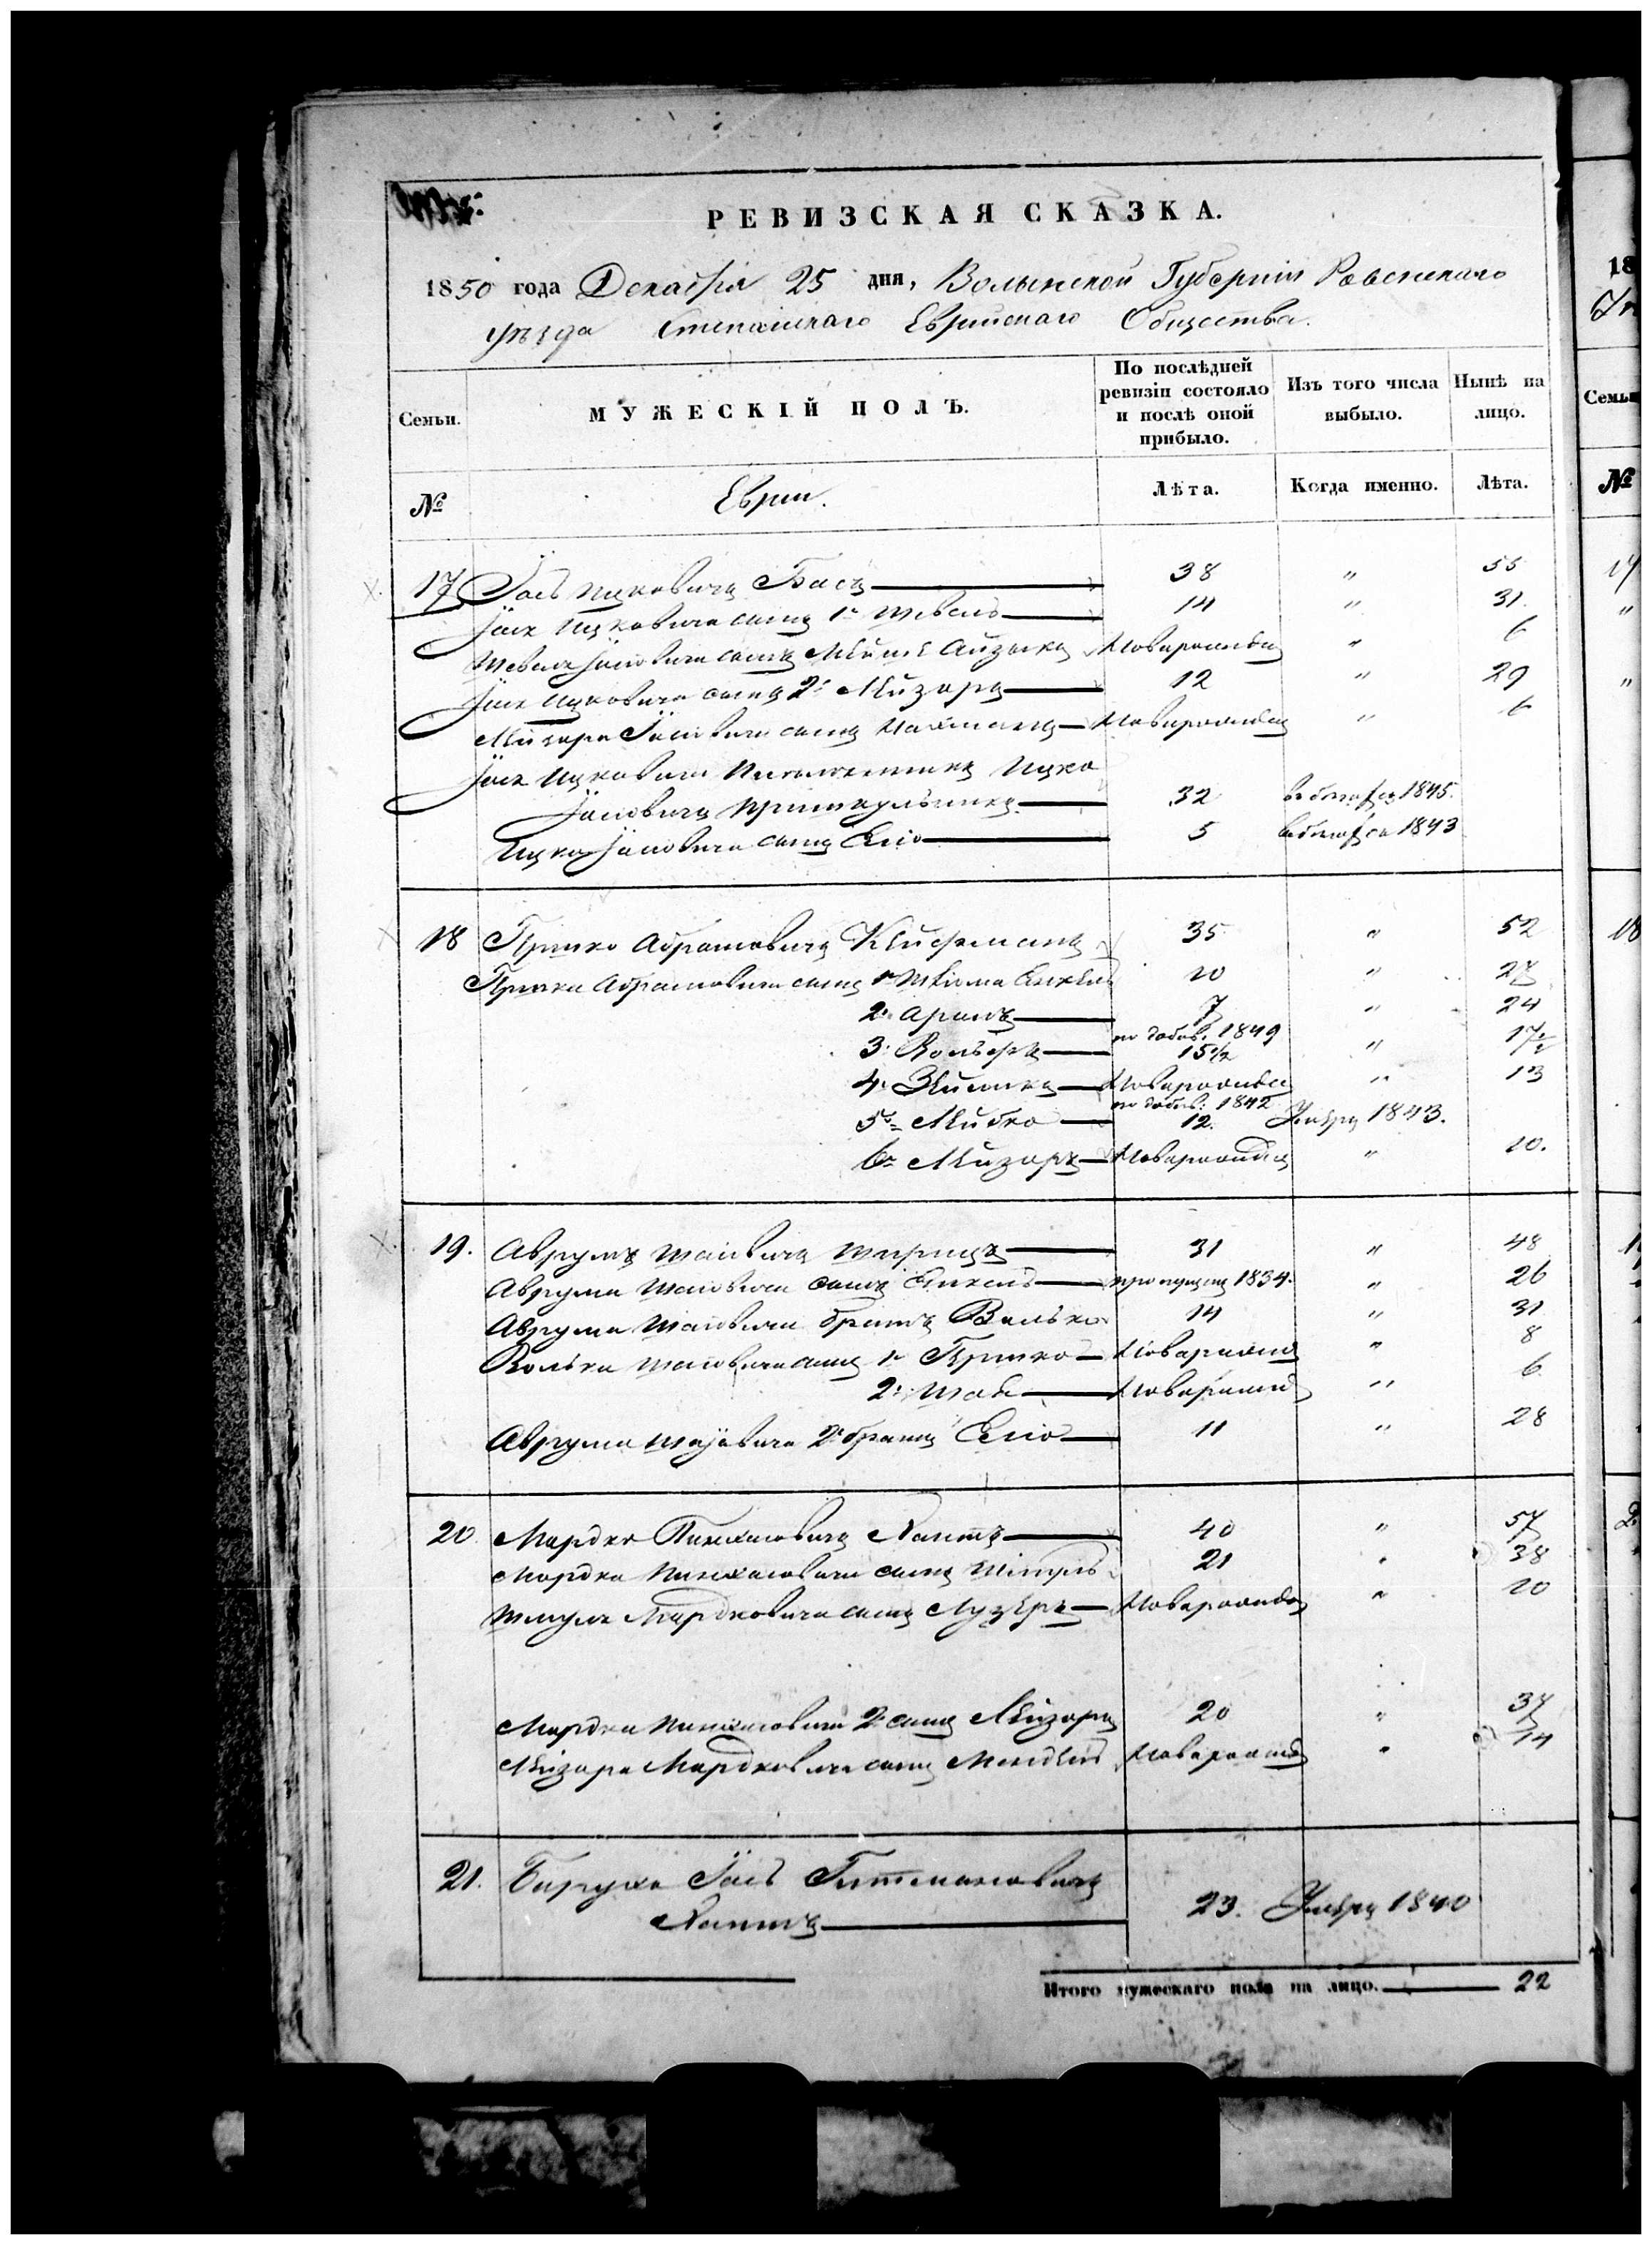 РЕВИЗСКАЯ СКАЗКА.
1850 года Декабря 25 дня, Волынской Губернии Ровенскаго
уѣзда Степанскаго Еврейскаго Общества.
Семьи.
МУЖЕСКІЙ ПОЛЪ.
По послѣдней ревизіи состояло и послѣ оной прибыло.
Изъ того числа выбыло.
Нынѣ на лицо.
Семьи
№
Евреи.
Лѣта.
Когда именно.
Лѣта.
№
17 Іось Ицковичъ Басъ 38 " 55
Іося Ицковича сынъ 1й Шевель 14 " 31.
Шевеля Іосіовича сынъ Айзыкъ Новорожденъ " 6
Іося Ицковича сынъ 2й Лейзоръ 12 " 29
Лейзора Іосіовича сынъ Нахманъ Новорожденъ " 6
Іося Ицковича Ицко
Іосіовичъ 32 1845.
Ицка Іосіовича сынъ Еліо 5 1843
18 Гершко Абрамовичъ 35 " 52
Гершка Абрамовича сынъ 1й 10 " 27
2й Аронъ 7 " 24
3й Вольфъ по добав. 1849 15 1/2 " 17 1/2
4й Новорожденъ " 13
5й Лейбко по добав: 1842 12. Умеръ 1843.
6й Лейзоръ Новорожденъ " 10.
19. Аврумъ Шаіовичъ 31 " 48
Аврума Шаіовича сынъ пропущенъ 1834. " 26
Аврума Шаіовича братъ Волько 14 " 31
Волька Шаіовича сынъ 1й Гершко Новорожденъ " 8
2й Новорожденъ " 6
Аврума Шаіовича 2й братъ Еліо 11 " 28
20 Мордко Пинхасовичъ 40 " 57
Мордка Пинхасовича сынъ Шмуль 21 " 38
Шмуля Мордковича сынъ Лузеръ Новорожденъ " 10
Мордка Пинхасовича 2й сынъ Лейзоръ 20 " 37
Лейзора Мордковича сынъ Мендель Новорожденъ " 14
21. Барухъ Іось
23. Умеръ 1840
Итого мужескаго пола на лицо. 22